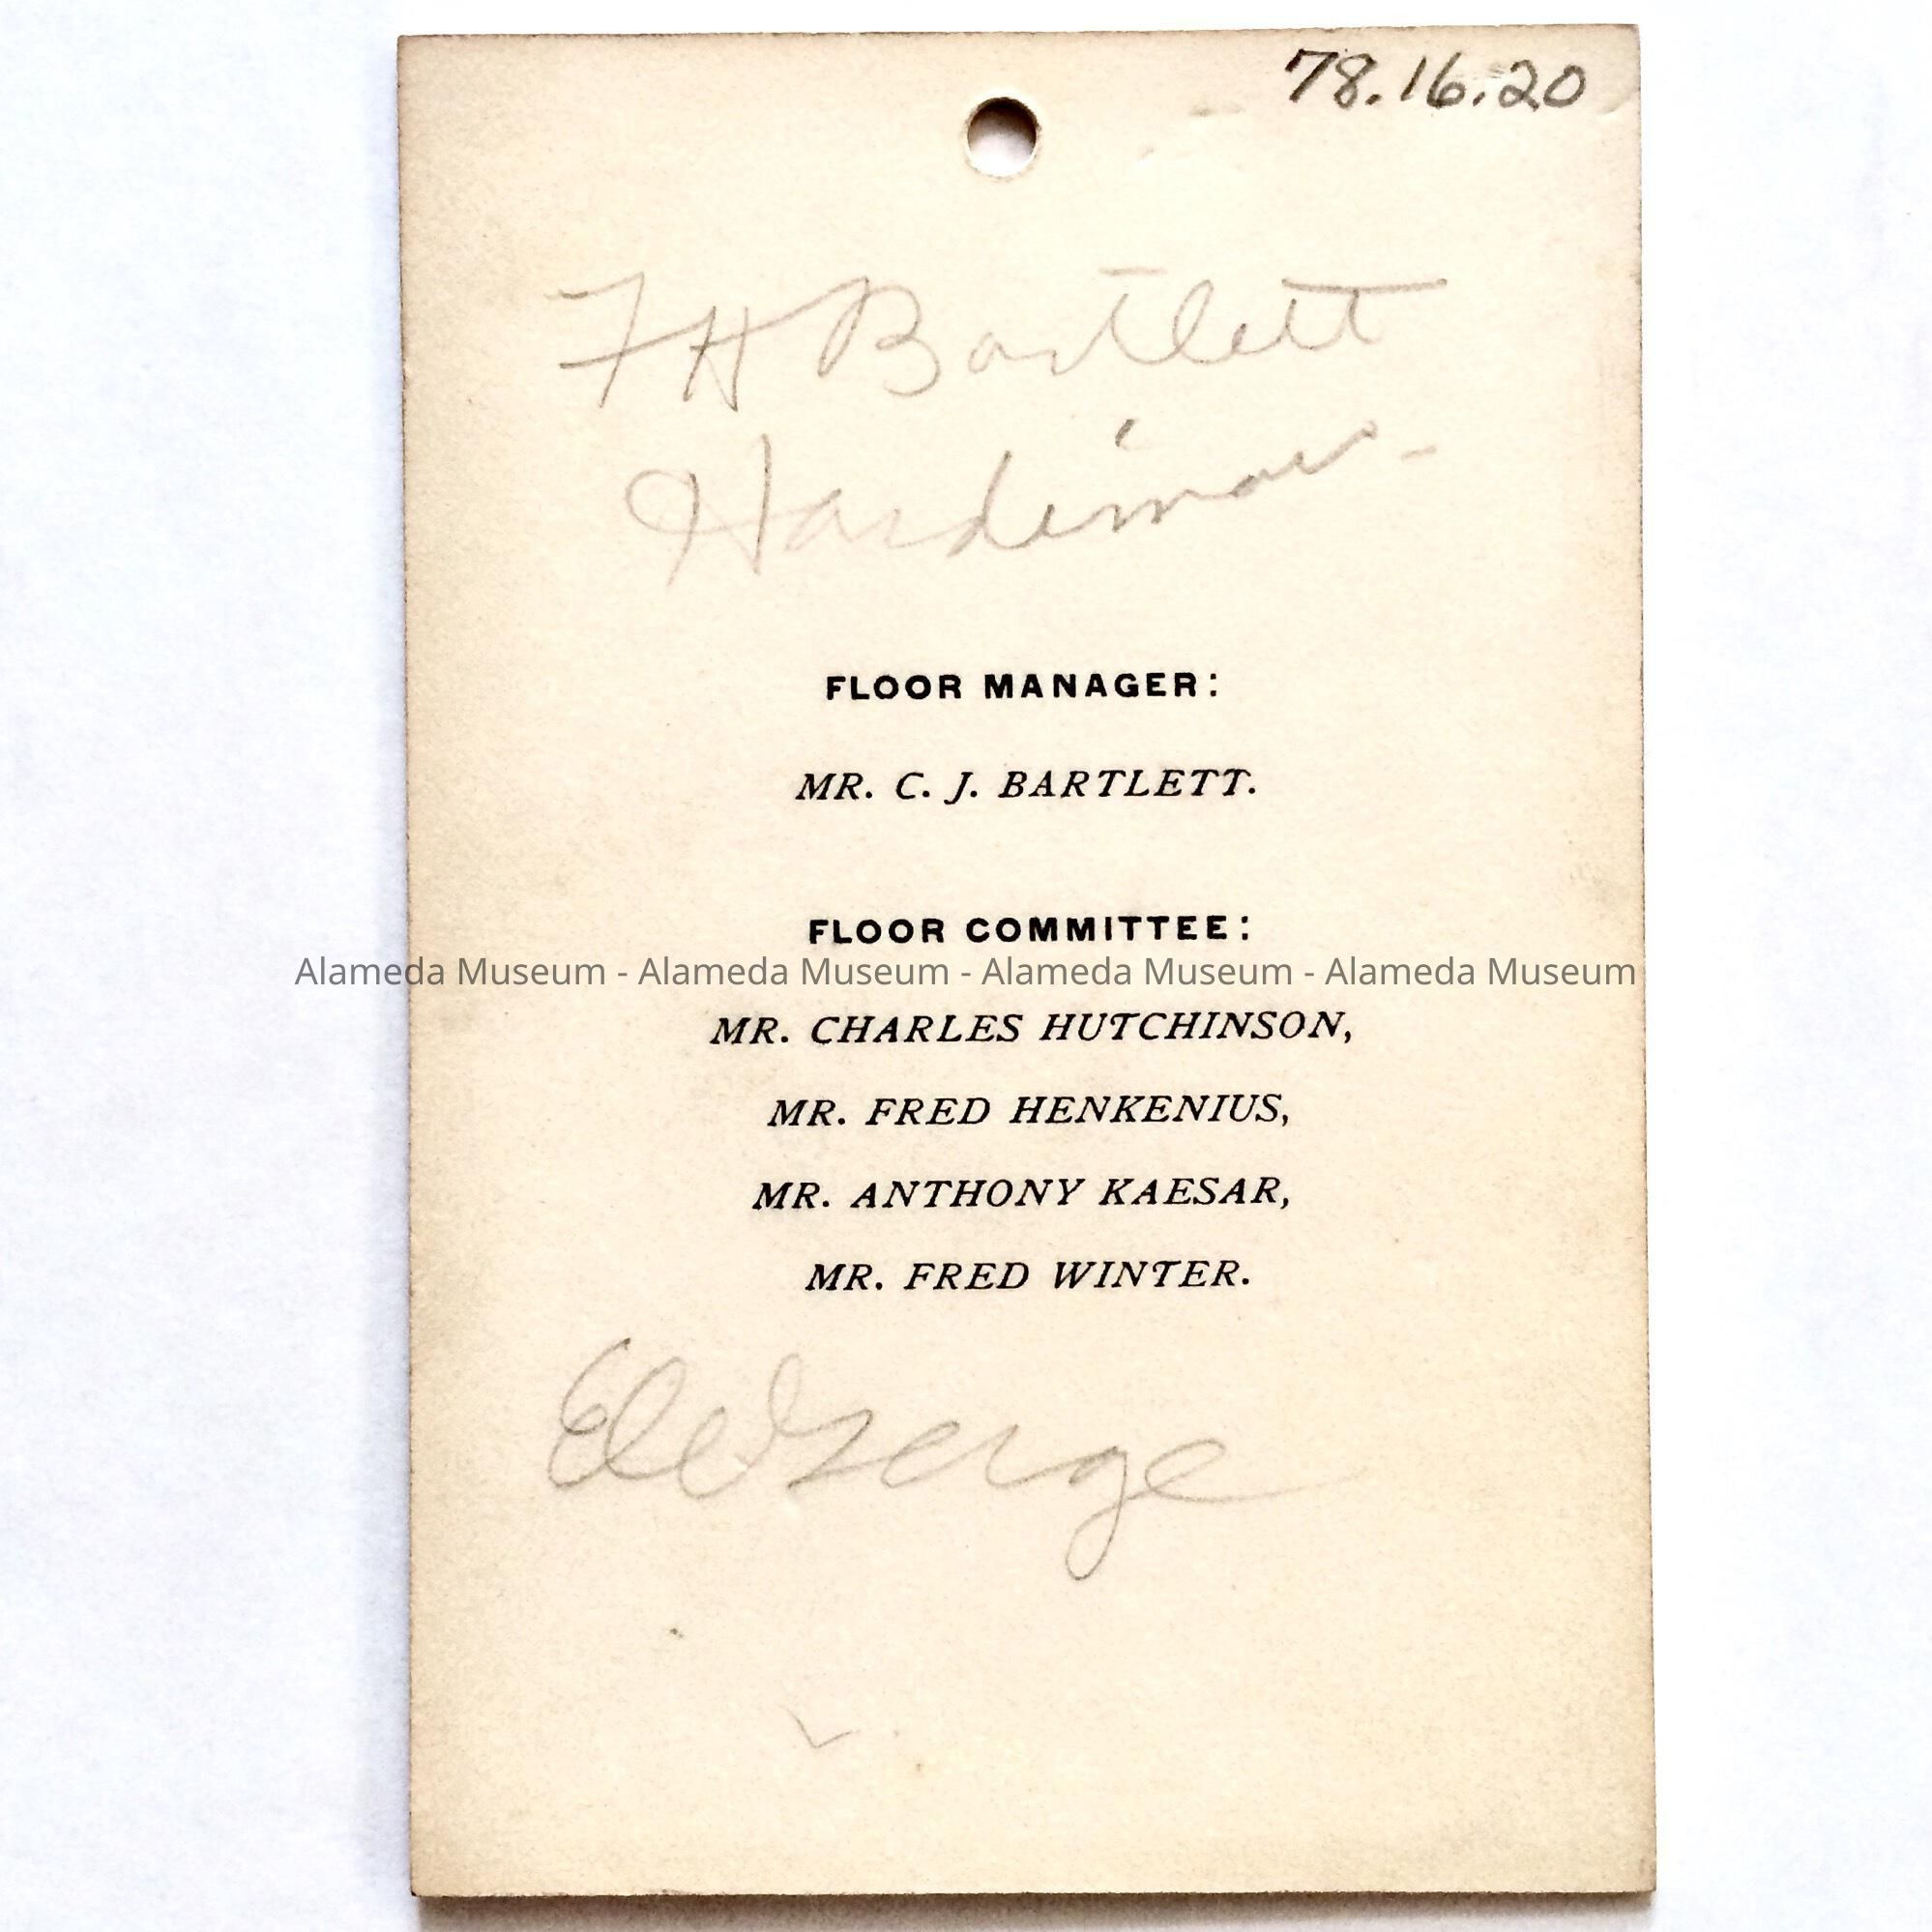 78.16.20
FH Bartlett
Hardiman
FLOOR MANAGER:
MR. C. J. BARTLETT.
FLOOR COMMITTEE:
Alameda Museum - Alameda Museum - Alameda Museum - Alameda Museum
MR. CHARLES HUTCHINSON,
MR. FRED HENKENIUS,
MR. ANTHONY KAESAR,
MR. FRED WINTER.